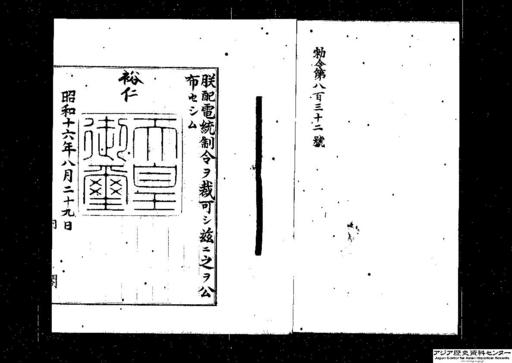 勅令第八百三十二號
朕配電統制令ヲ裁可シ茲ニ之ヲ公
布セシム
裕仁
天皇御璽
昭和十六年八月二十九日
内閣
アジア歴史資料センター
Japan Center for Asian Historical Records